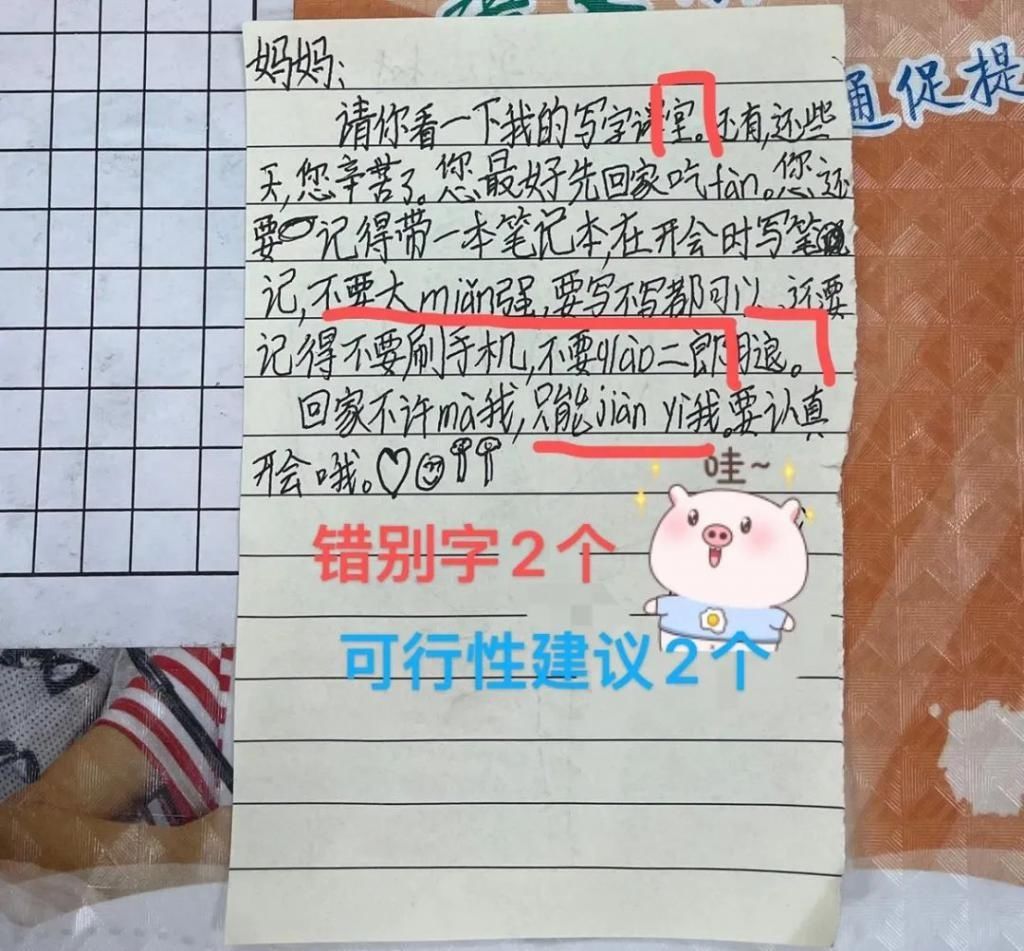 妈妈：
请你看一下我的写字课室。还有,这些
天,您辛苦了。您最好先回家吃fàn。您还
要记得带一本笔记本,在开会时写笔
记,不要大miǎn强,要写不写都可以,还要
记得不要刷手机,不要qiào二郎腿。
回家不许mà我,只能jiàn yì我。要认真
开会哦。
哇~
错别字2个
可行性建议2个
通促提